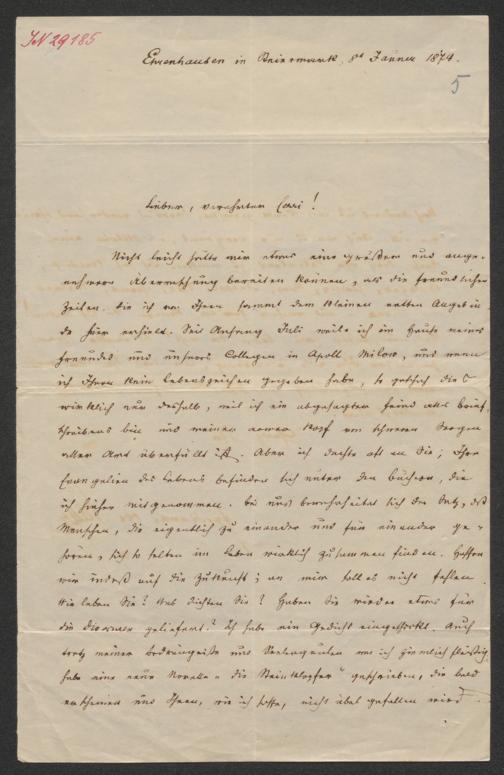 JN 29185
Ehrenhausen in Steiermark, 8t Jänner 1874.
5
Lieber, verehrter Cerri!
Nicht leicht hätte mir etwas eine größere und ange-
nehmere Überraschung bereiten können, als die freundlichen
Zeilen, die ich von Ihnen sammt dem kleinen netten Angebin-
de hier erhielt. Seit Anfang Juli weile ich im Hause meines
Freundes und unseres Collegen in Apoll Milow, und wenn
ich Ihnen kein Lebenszeichen gegeben habe, so geschah dieß
wirklich nur deshalb, weil ich ein abgesagter Feind alles Brief-
schreibens bin und meinen armen Kopf von schweren Sorgen
aller Art überfüllt ist. Aber ich dachte oft an Sie; Ihre
Evangelien des Lebens befinden sich unter den Büchern, die
ich hieher mitgenommen. Bei uns bewahrheitet sich der Satz, daß
Menschen, die eigentlich zu einander und für einander ge-
hören, sich so selten im Leben wirklich zusammen finden. Hoffen
wir indeß auf die Zukunft; an mir soll es nicht fehlen.
Wie leben Sie? Was dichten Sie? Haben Sie wieder etwas für
die Dioskuren geliefert? Ich habe ein Gedicht eingeschickt. Auch
trotz meiner Bedrängnisse und war ich ziemlich fleißig,
habe eine neue Novelle "die Steinklopfer" geschrieben, die bald
erscheinen und Ihnen, wie ich hoffe, nicht übel gefallen wird